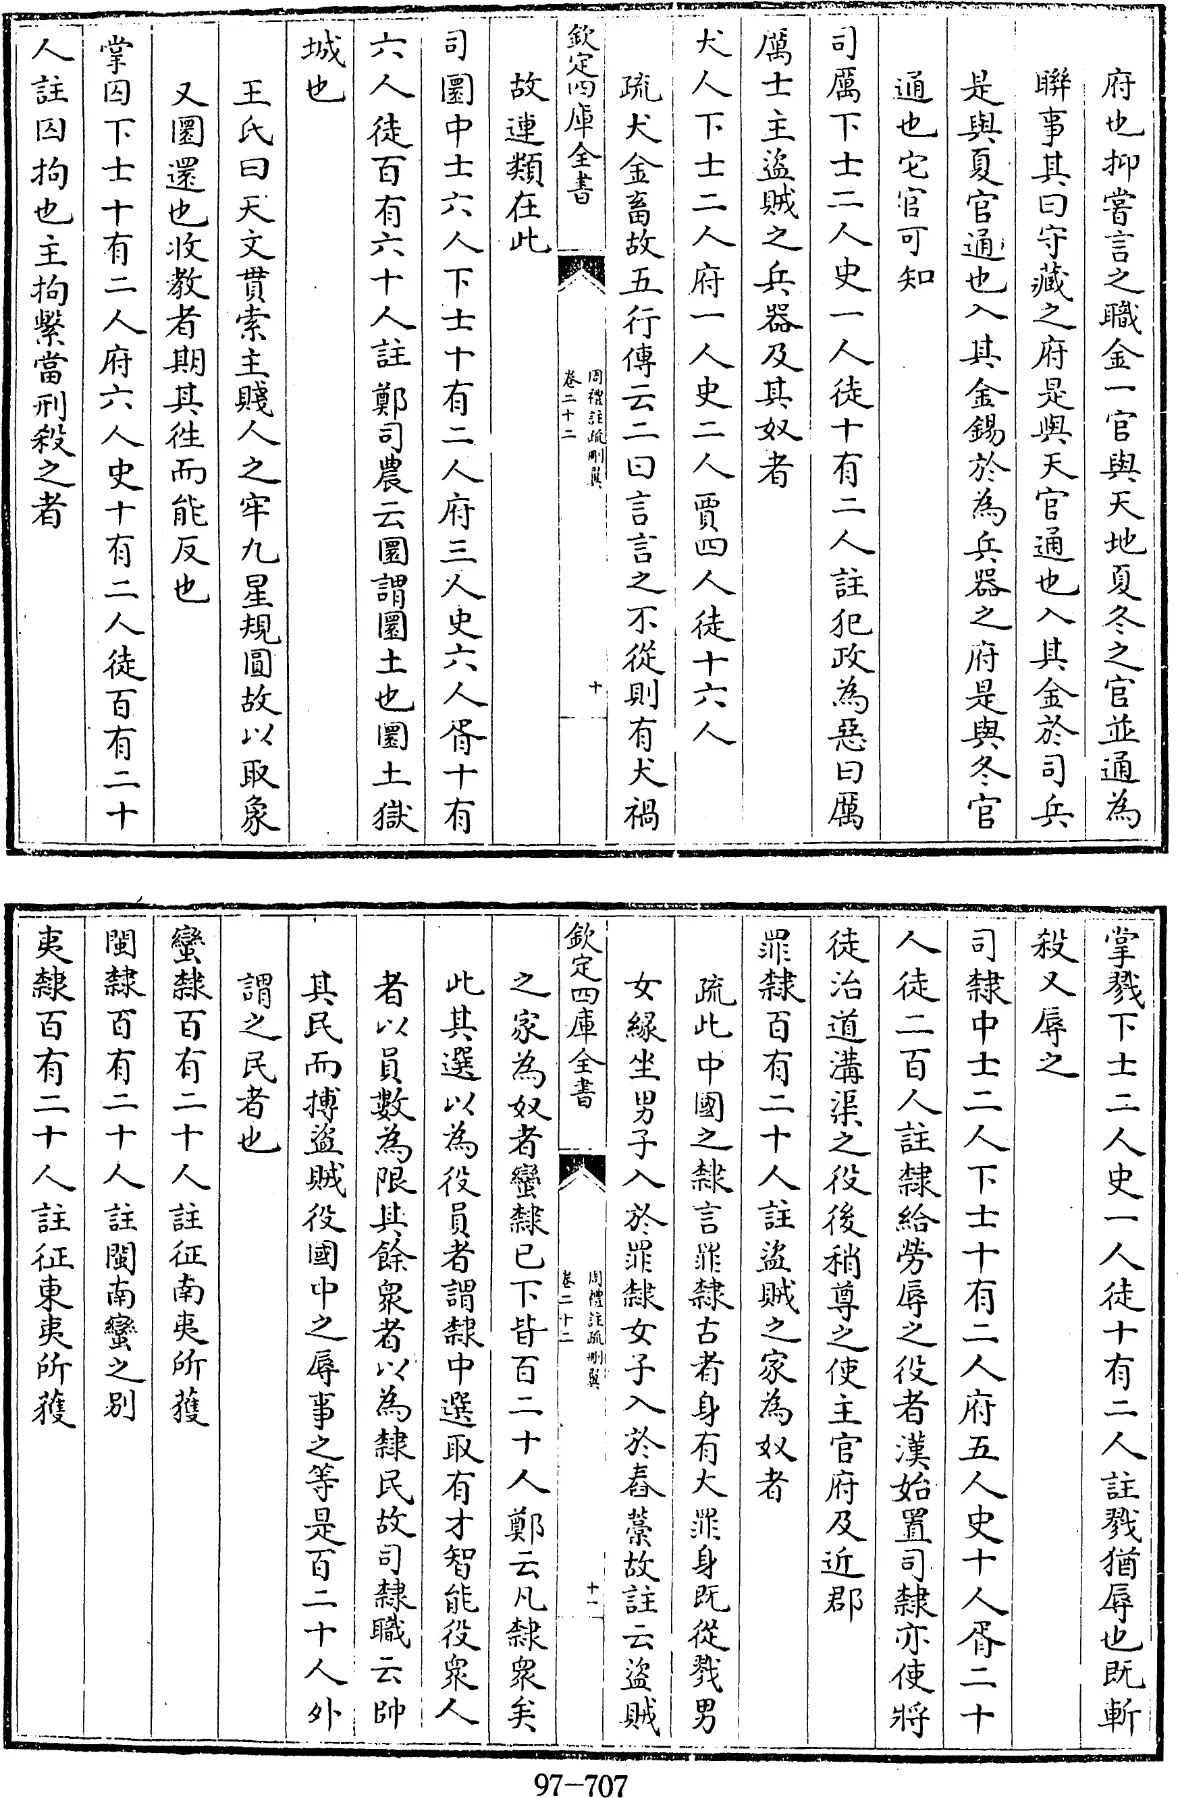 府也抑嘗言之職金一官與天地夏冬之官並通為
聯事其曰守藏之府是與天官通也入其金於司兵
是與夏官通也入其金錫於為兵器之府是與冬官
通也它官可知
司厲下士二人史一人徒十有二人註犯政為惡曰厲
厲士主盜賊之兵器及其奴者
犬人下士二人府一人史二人賈四人徒十六人
疏犬金畜故五行傳云二曰言言之不從則有犬禍
欽定四庫全書
周禮註疏刪翼
卷二十二
十
故連類在此
司圜中士六人下士十有二人府三人史六人胥十有
六人徒百有六十人註鄭司農云圜謂圜土也圜土獄
城也
王氏曰天文貫索主賤人之牢九星規圓故以取象
又圜還也收教者期其徃而能反也
掌囚下士十有二人府六人史十有二人徒百有二十
人註囚拘也主拘繫當刑殺之者
掌戮下士二人史一人徒十有二人註戮猶辱也既斬
殺又辱之
司隸中士二人下士十有二人府五人史十人胥二十
人徒二百人註隸給勞辱之役者漢始置司隸亦使將
徒治道溝渠之役後稍尊之使主官府及近郡
罪隸百有二十人註盜賊之家為奴者
疏此中國之隸言罪隸古者身有大罪身既從戮男
女緣坐男子入於罪隸女子入於舂藁故註云盜賊
欽定四庫全書
周禮註疏刪翼
卷二十二
十一
之家為奴者蠻隸已下皆百二十人鄭云凡隸衆矣
此其選以為役員者謂隸中選取有才智能役衆人
者以員數為限其餘衆者以為隸民故司隸職云帥
其民而搏盜賊役國中之辱事之等是百二十人外
謂之民者也
蠻隸百有二十人註征南夷所獲
閩隸百有二十人註閩南蠻之別
夷隸百有二十人註征東夷所獲
97-707